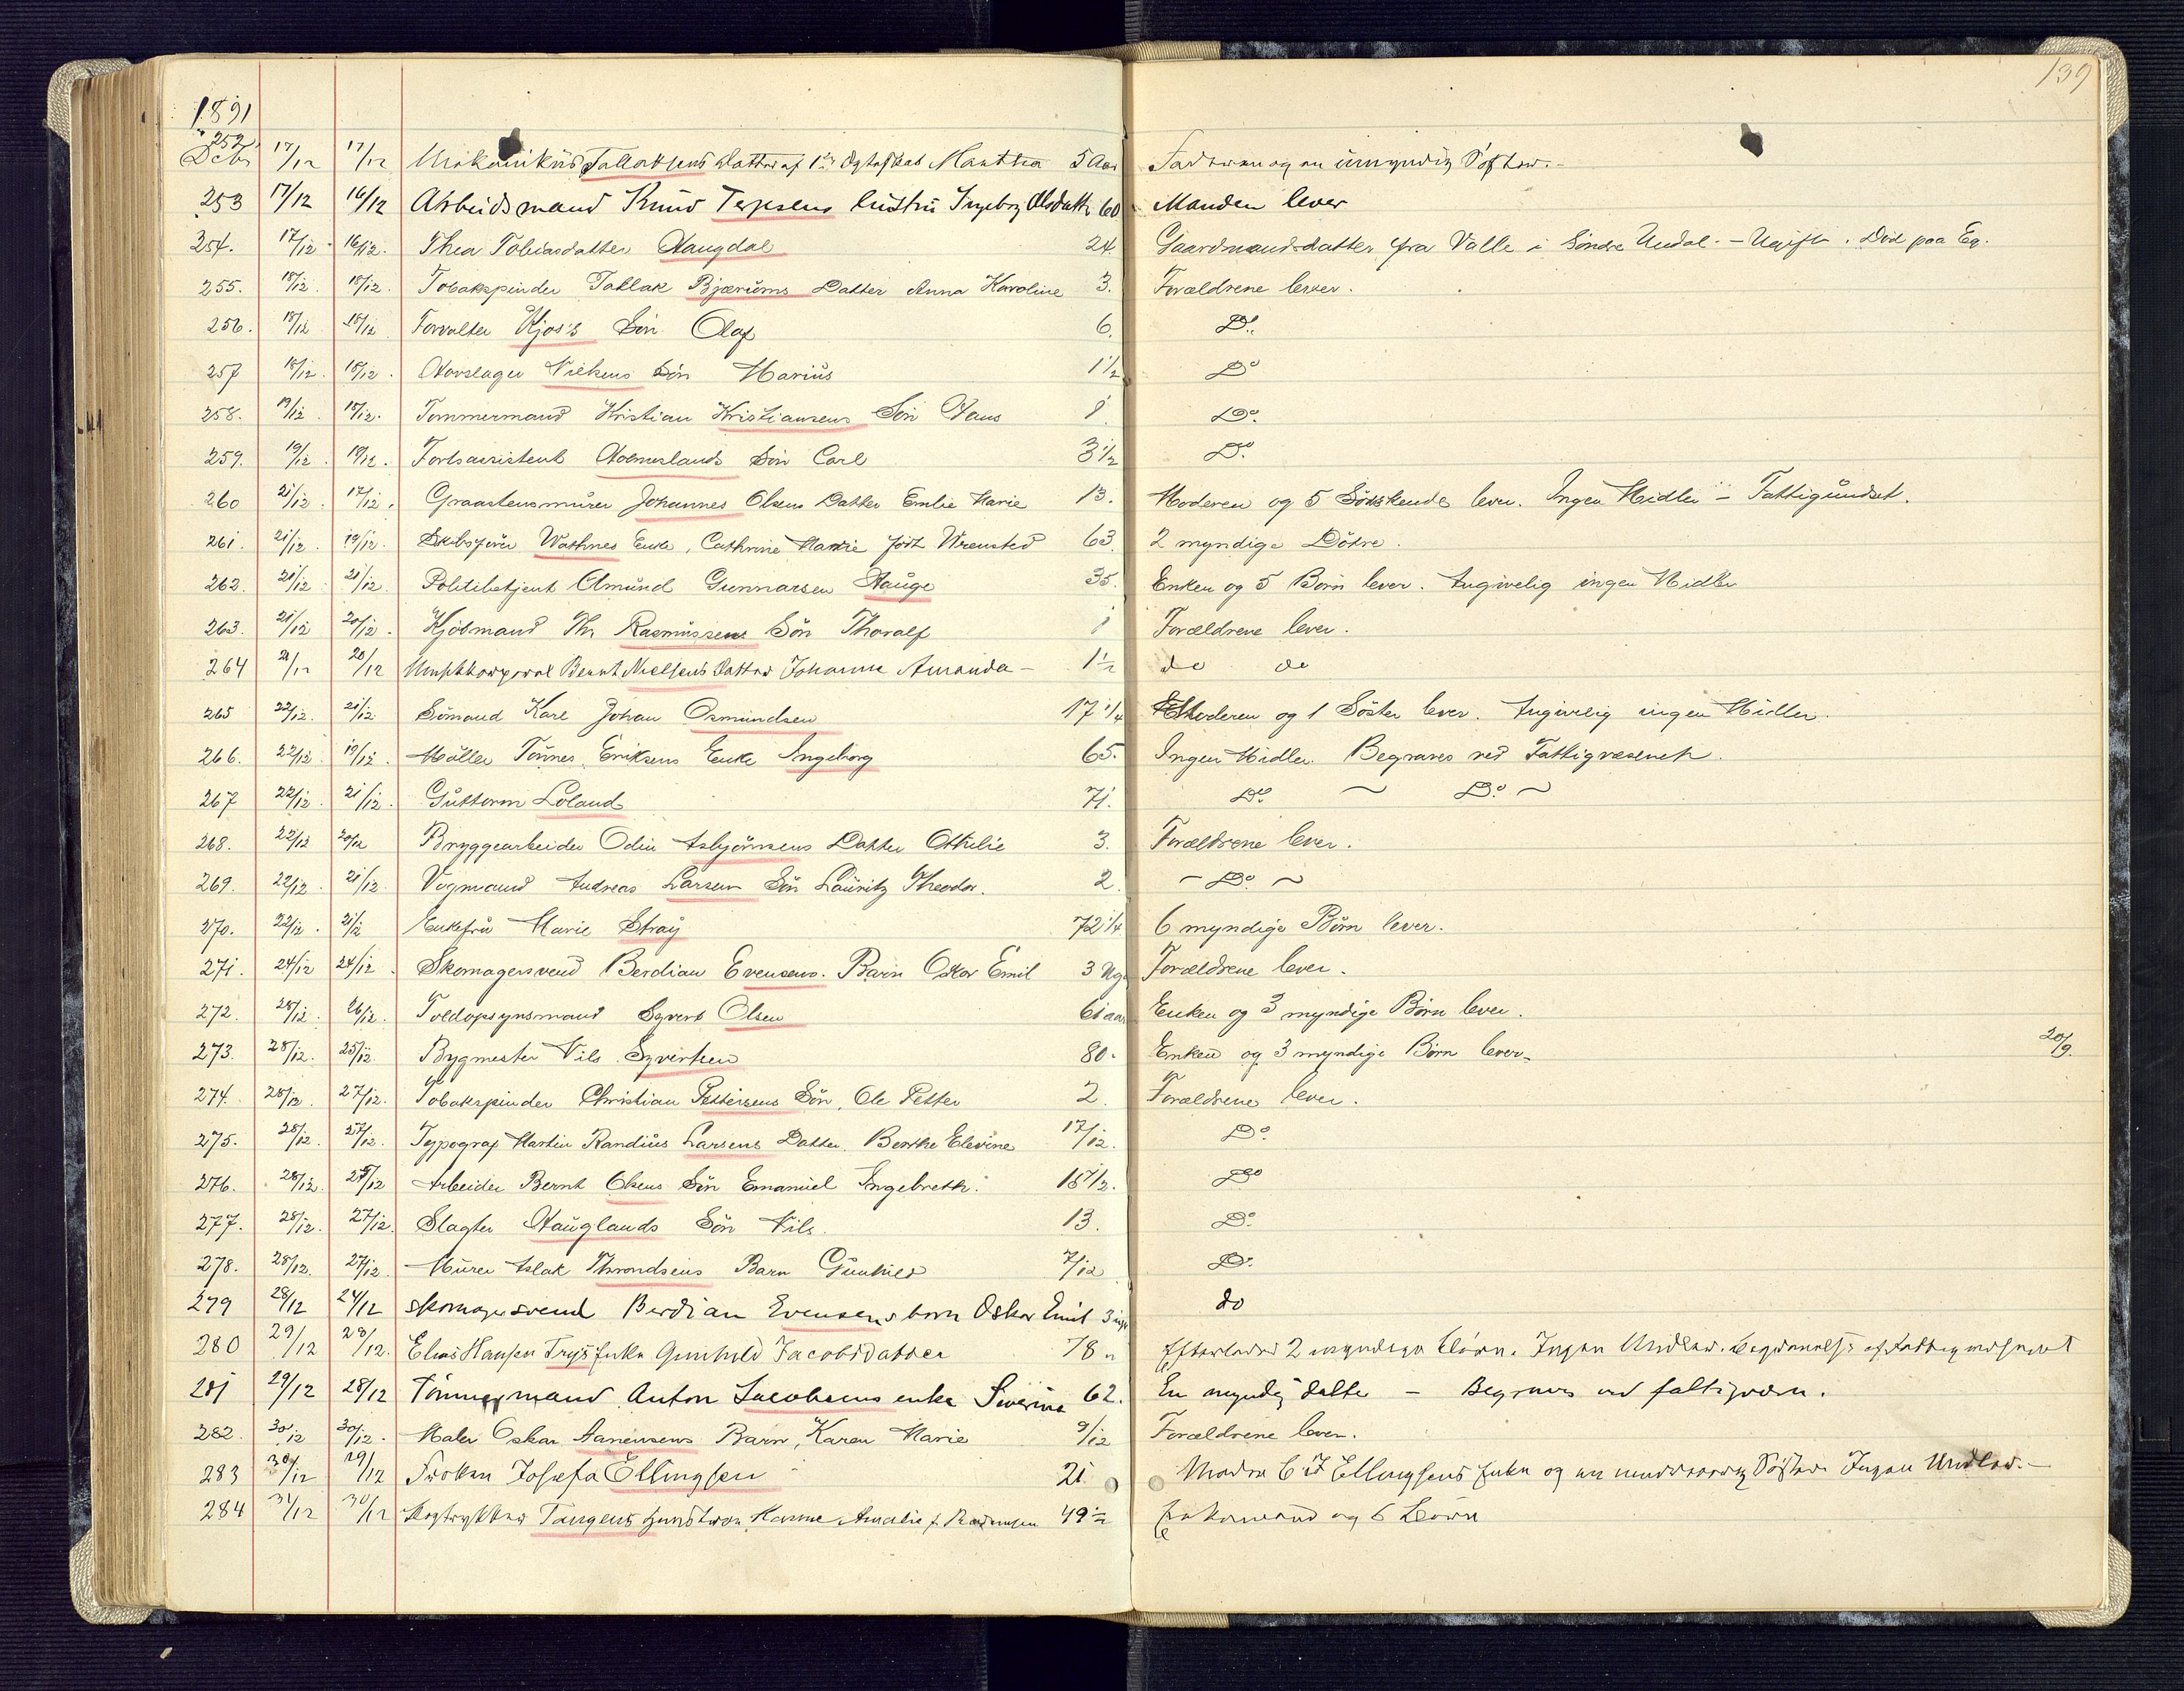 139
1891
252. Decbr 17/12 17/12 Mekanikus Tallaksens Datter af 1ste Ægteskab Martha 5 Aar Faderen og en umyndig Søster. -
253 17/12 16/12 Arbeidsmand Knud Terjesens hustru Ingeborg Olsdatter 60 Manden lever
254. 17/12 16/12. Thea Tobiasdatter Haugdal 24. Gaardmandsdatter fra Valle i Søndre Undal. - Ugift. Død paa Eg.
255. 18/12. 18/12. Tobakspinder Tallak Bjærums Datter Anna Karoline 3. Forældrene lever.
256. 18/12 18/12. Forvalter Kjos's Søn Olaf 6. Do.
257 18/12. 18/12. Hovslager Nielsens Søn Marius 1 1/2 Do
258. 19/12. 18/12. Tømmermand Kristian Kristiansens Søn Hans 1. Do.
259. 19/12. 19/12. Fortsassistent Holmeslands Søn Carl 3 1/2 Do.
260 21/12. 17/12. Graastensmurer Johannes Olsens Datter Emlie Marie 13. Moderen og 5 Søskende lever. Ingen Midler - Fattigundst.
261. 21/12. 19/12. Skibsfører Wathnes Enke, Cathrine Marie født Wrensted 63. 2 myndige Døtre.
262. 21/12 21/12. Politibetjent Omund Gunnarsen Hauge 35. Enken og 5 Børn lever. Angivelig ingen Midler
263. 21/12 20/12. Kjøbmand Th. Rasmussens Søn Thoralf 1 Forældrene lever.
264 21/12 20/12 Bernt Nielsens Datter Johanne Amanda - 1 1/2 do do
265 22/12. 21/12. Sømand Karl Johan Osmundsen 17 1/4 Moderen og 1 Søster lever. Angivelig ingen Midler.
266. 22/12. 19/12. Møller Tønnes Eriksens Enke Ingeborg 65. Ingen Midler. Begraves ved Fattigvæsenet.
267 22/12. 21/12. Guttorm Loland 71. Do. ~ Do. ~
268. 22/12 20/12 Bryggearbeider Odin Asbjørnsens Datter Othilie 3. Forældrene lever.
269. 22/12. 21/12 Vognmand Andreas Larsen Søn Lauritz Theodor. 2. - Do. ~
270. 22/12. 21/12 Enkefru Marie Stray 72 1/4 6 myndige Børn lever.
271. 24/12 24/12. Skomagersvend Berdian Evensens. Barn Oskar Emil 3 Ug. Forældrene lever.
272. 28/12. 26/12. Toldopsynsmand Syvert Olsen 61 aar Enken og 3 myndige Børn lever.
273. 28/12. 25/12. Bygmester Nils Syvertsen 80. Enken og 3 myndige Børn lever. 20/9.
274. 28/12. 27/12. Tobakspinder Christian Pettersens Søn, Ole Petter 2. Forældrene lever.
275. 28/12. 27/12. Typograf Martin Randius Larsens Datter, Berthe Elevine 17/12. Do.
276. 28/12. 27/12 Arbeider Bernt Olsens Søn Emanuel Ingebreth. 16 1/2. Do
277. 28/12. 27/12. Slagter Hauglands Søn Nils. 13. Do.
278. 28/12. 27/12. Murer Aslak Throndsens Barn Gunhild 7/12 Do.
279 28/12 24/12 skomagersvend Berdian Evensens barn Oskar Emil 3 uger do
280 29/12 28/12. Elias Hansen Trys Enke Gunhild Jacobsdatter 78 " Efterlader 2 myndige Børn. Ingen Midler. Begravelse af Fattigvæsenet
281 29/12 28/12 Tømmermand Anton Jacobsens enke Severine 62. En myndig datter - Begraves ved fattigvæsn.
282. 30/12 30/12. Maler Oskar Aanensens Barn, Karen Marie 9/12 Forældrene lever.
283 30/12 29/12 Frøken Josefa Ellingsen - 21 Moder Ellingsens Enke og en Søster. Ingen Midler. -
284 31/12 30/12 Bogtrykker Tangens Hustru Hanne Amalie f. Rasmusen 49 1/2 Enkemand og 6 Børn